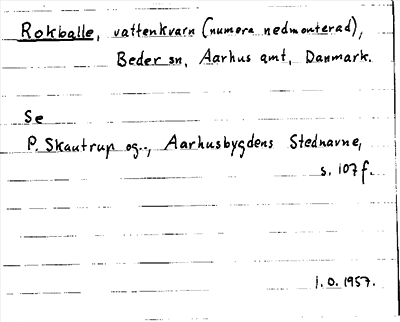 Rokballe, vattenkvarn (numera nedmonterad),
Beder sn, Aarhus amt, Danmark.
Se
P. Skautrup og.., Aarhusbygdens Stednavne,
s. 107 f.
I.O. 1957.